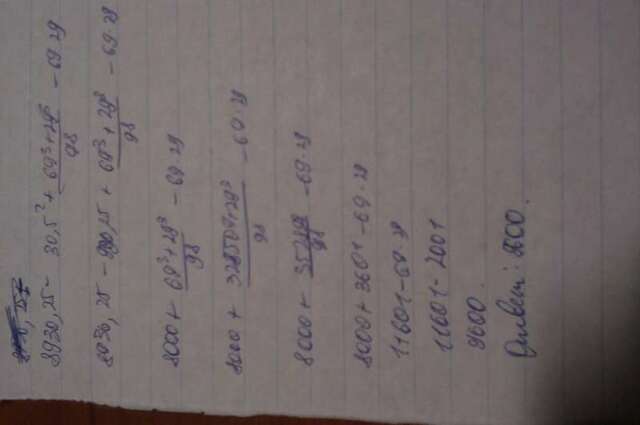 8930,25 - 30,5² + 69³+29³/98 - 69·29
8930,25 - 930,25 + 69³+29³/98 - 69·29
8000 + 69³+29³/98 - 69·29
8000 + 328509+29³/98 - 69·29
8000 + /98 - 69·29
8000 + 3601 - 69·29
11601 - 69·29
11601 - 2001
9600.
Ответ: 9600.